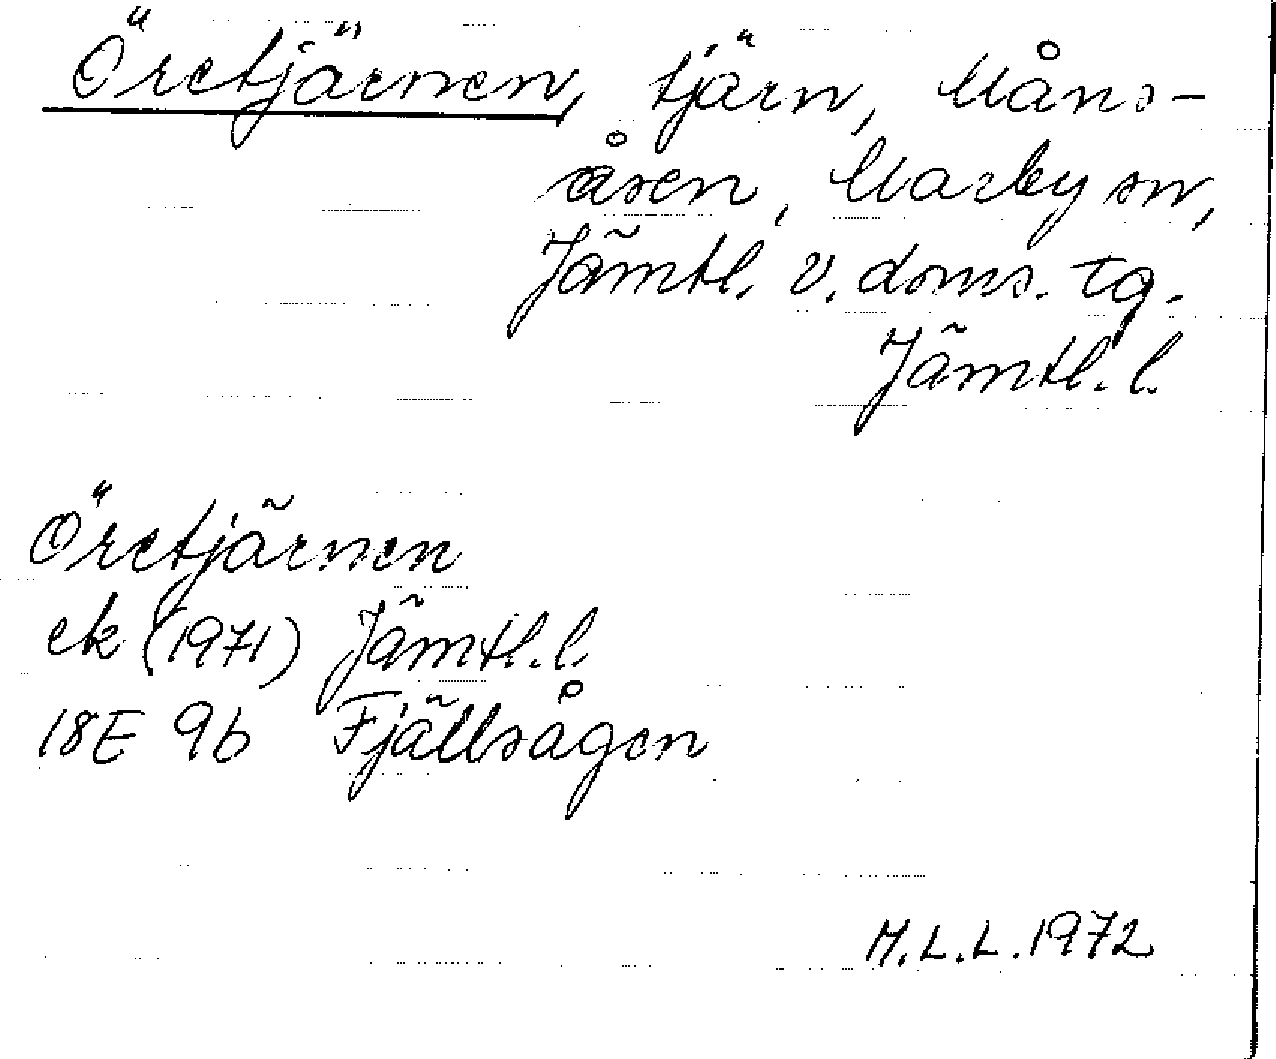 Öretjärnen, tjärn, Måns-
åsen, Marby sn,
Jämtl. v. doms. tg.
Jämtl. l.
Öretjärnen
ek (1971) Jämtl. l.
18E 9b Fjällsågen
M.L.L. 1972